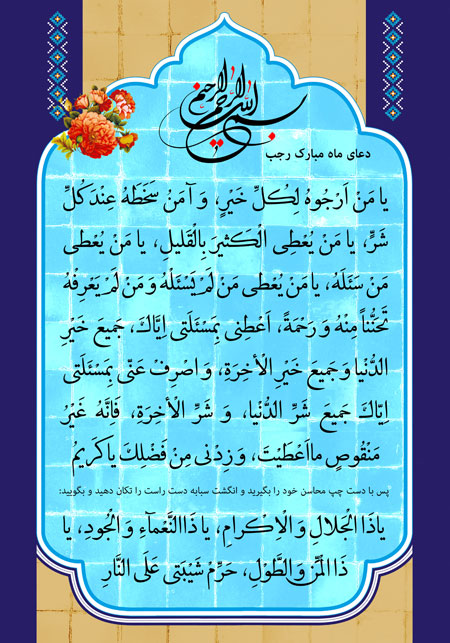 بسم الله الرحمن الرحیم
دعای ماه مبارک رجب
یا مَنْ اَرْجُوهُ لِکُلِّ خَیْرٍ، وَ آمَنُ سَخَطَهُ عِنْدَ کُلِّ
شَرٍّ، یا مَنْ یُعْطِی الْکَثیرَ بِالْقَلیلِ، یا مَنْ یُعْطی
مَنْ سَئَلَهُ، یا مَنْ یُعْطی مَنْ لَمْ یَسْئَلْهُ وَ مَنْ لَمْ یَعْرِفْهُ
تَحَنُّناً مِنْهُ وَ رَحْمَةً، اَعْطِنی بِمَسْئَلَتی اِیَّاکَ، جَمیعَ خَیْرِ
الدُّنْیا وَ جَمیعَ خَیْرِ الْأخِرَةِ، وَ اصْرِفْ عَنّی بِمَسْئَلَتی
اِیَّاکَ جَمیعَ شَرِّ الدُّنْیا، وَ شَرِّ الْأخِرَةِ، فَاِنَّهُ غَیْرُ
مَنْقُوصٍ مااَعْطَیْتَ، وَ زِدْنی مِنْ فَضْلِکَ یا کَریمُ
پس با دست چپ محاسن خود را بگیرید و انگشت سبابه دست راست را تکان دهید و بگویید:
یاذَا الْجَلالِ وَ الْاِکْرامِ، یا ذَا النَّعْمآءِ وَ الْجُودِ، یا
ذَا الْمَنِّ وَ الطَّوْلِ، حَرِّمْ شَیْبَتی عَلَی النَّارِ